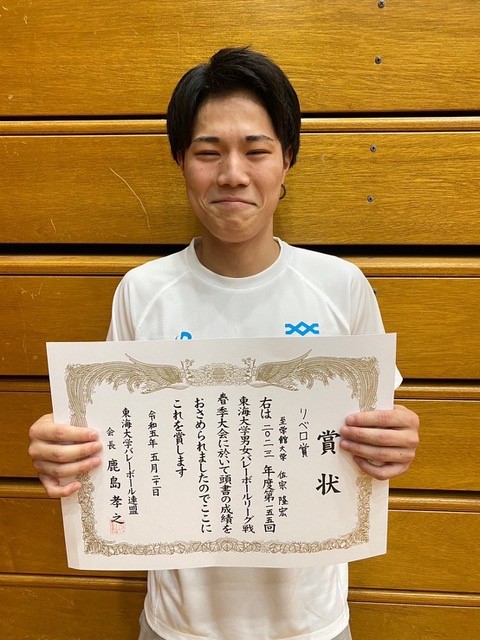 賞状
リベロ賞
至学館大学 佐宗 隆宏
右は 二〇二三年度第一五五回
東海大学男女バレーボールリーグ戦
春季大会に於いて頭書の成績を
おさめられましたのでここに
これを賞します
令和五年 五月二十一日
東海大学バレーボール連盟
会長 鹿島 孝之